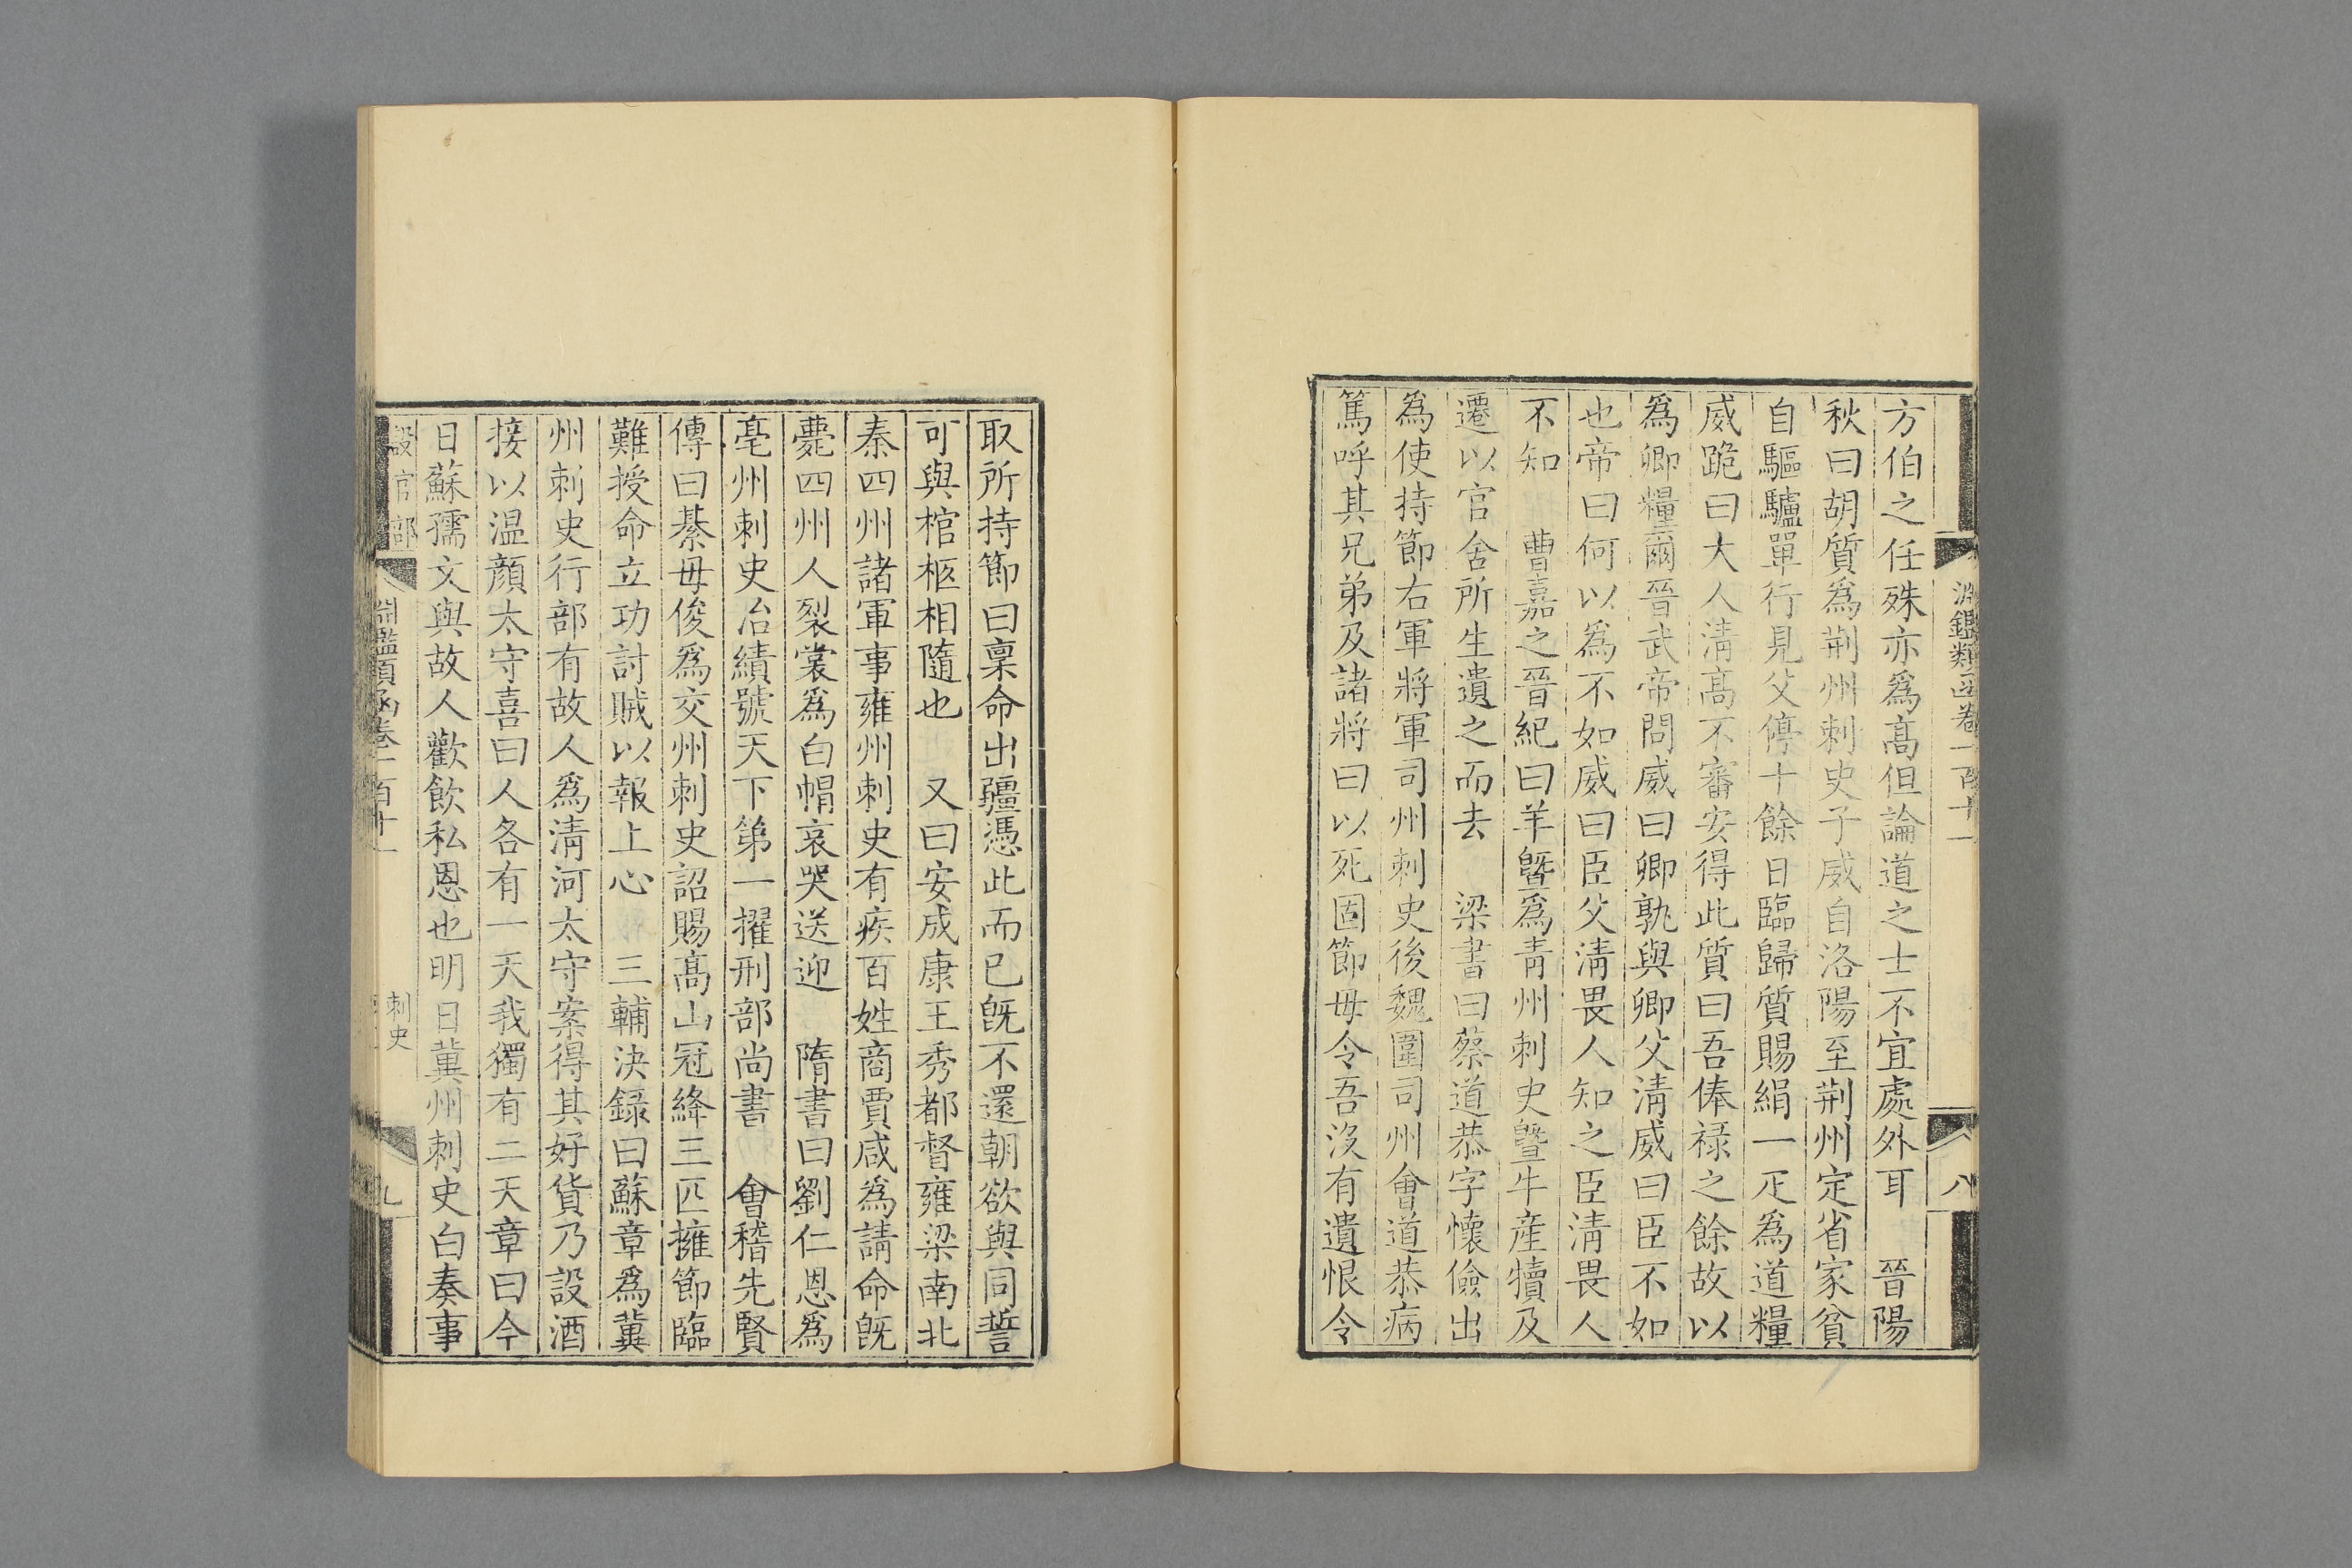 淵鑑類函卷一百十一
八
方伯之任殊亦爲髙但論道之士不宜處外耳　晉陽
秋曰胡質爲荆州刺史子威自洛陽至荆州定省家貧
自驅驢單行見父停十餘日臨歸質賜絹一疋爲道糧
威跪曰大人淸髙不審安得此質曰吾俸禄之餘故以
爲卿糧爾晉武帝問威曰卿孰與卿父淸威曰臣不如
也帝曰何以爲不如威曰臣父淸畏人知之臣淸畏人
不知　曹嘉之晉紀曰羊曁爲靑州刺史曁牛産犢及
遷以官舍所生遺之而去　梁書曰蔡道恭字懷儉出
爲使持節右軍將軍司州刺史後魏圍司州會道恭病
篤呼其兄弟及諸將曰以死固節毋令吾沒有遺恨令
取所持節曰稟命出疆憑此而已旣不還朝欲與同誓
可與棺柩相隨也　又曰安成康王秀都督雍梁南北
秦四州諸軍事雍州刺史有疾百姓商賈咸爲請命旣
薨四州人裂裳爲白帽哀哭送迎　隋書曰劉仁恩爲
亳州刺史治績號天下第一擢刑部尚書　會稽先賢
傳曰綦毋俊爲交州刺史詔賜髙山冠絳三匹擁節臨
難授命立功討賊以報上心　三輔決録曰蘇章爲冀
州刺史行部有故人爲淸河太守案得其好貨乃設酒
接以温顔太守喜曰人各有一天我獨有二天章曰今
日蘇孺文與故人歡飮私恩也明日冀州刺史白奏事
設官部
淵鑑類函卷一百十一
刺史
九